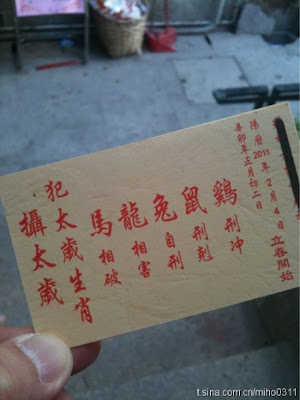 陽曆2011年2月4日立春開始
辛卯年正月初二日
鷄刑冲
鼠刑剋
兔自刑
龍相害
馬相破
犯太歲生肖
攝太歲
t.sina.com.cn/miho0311